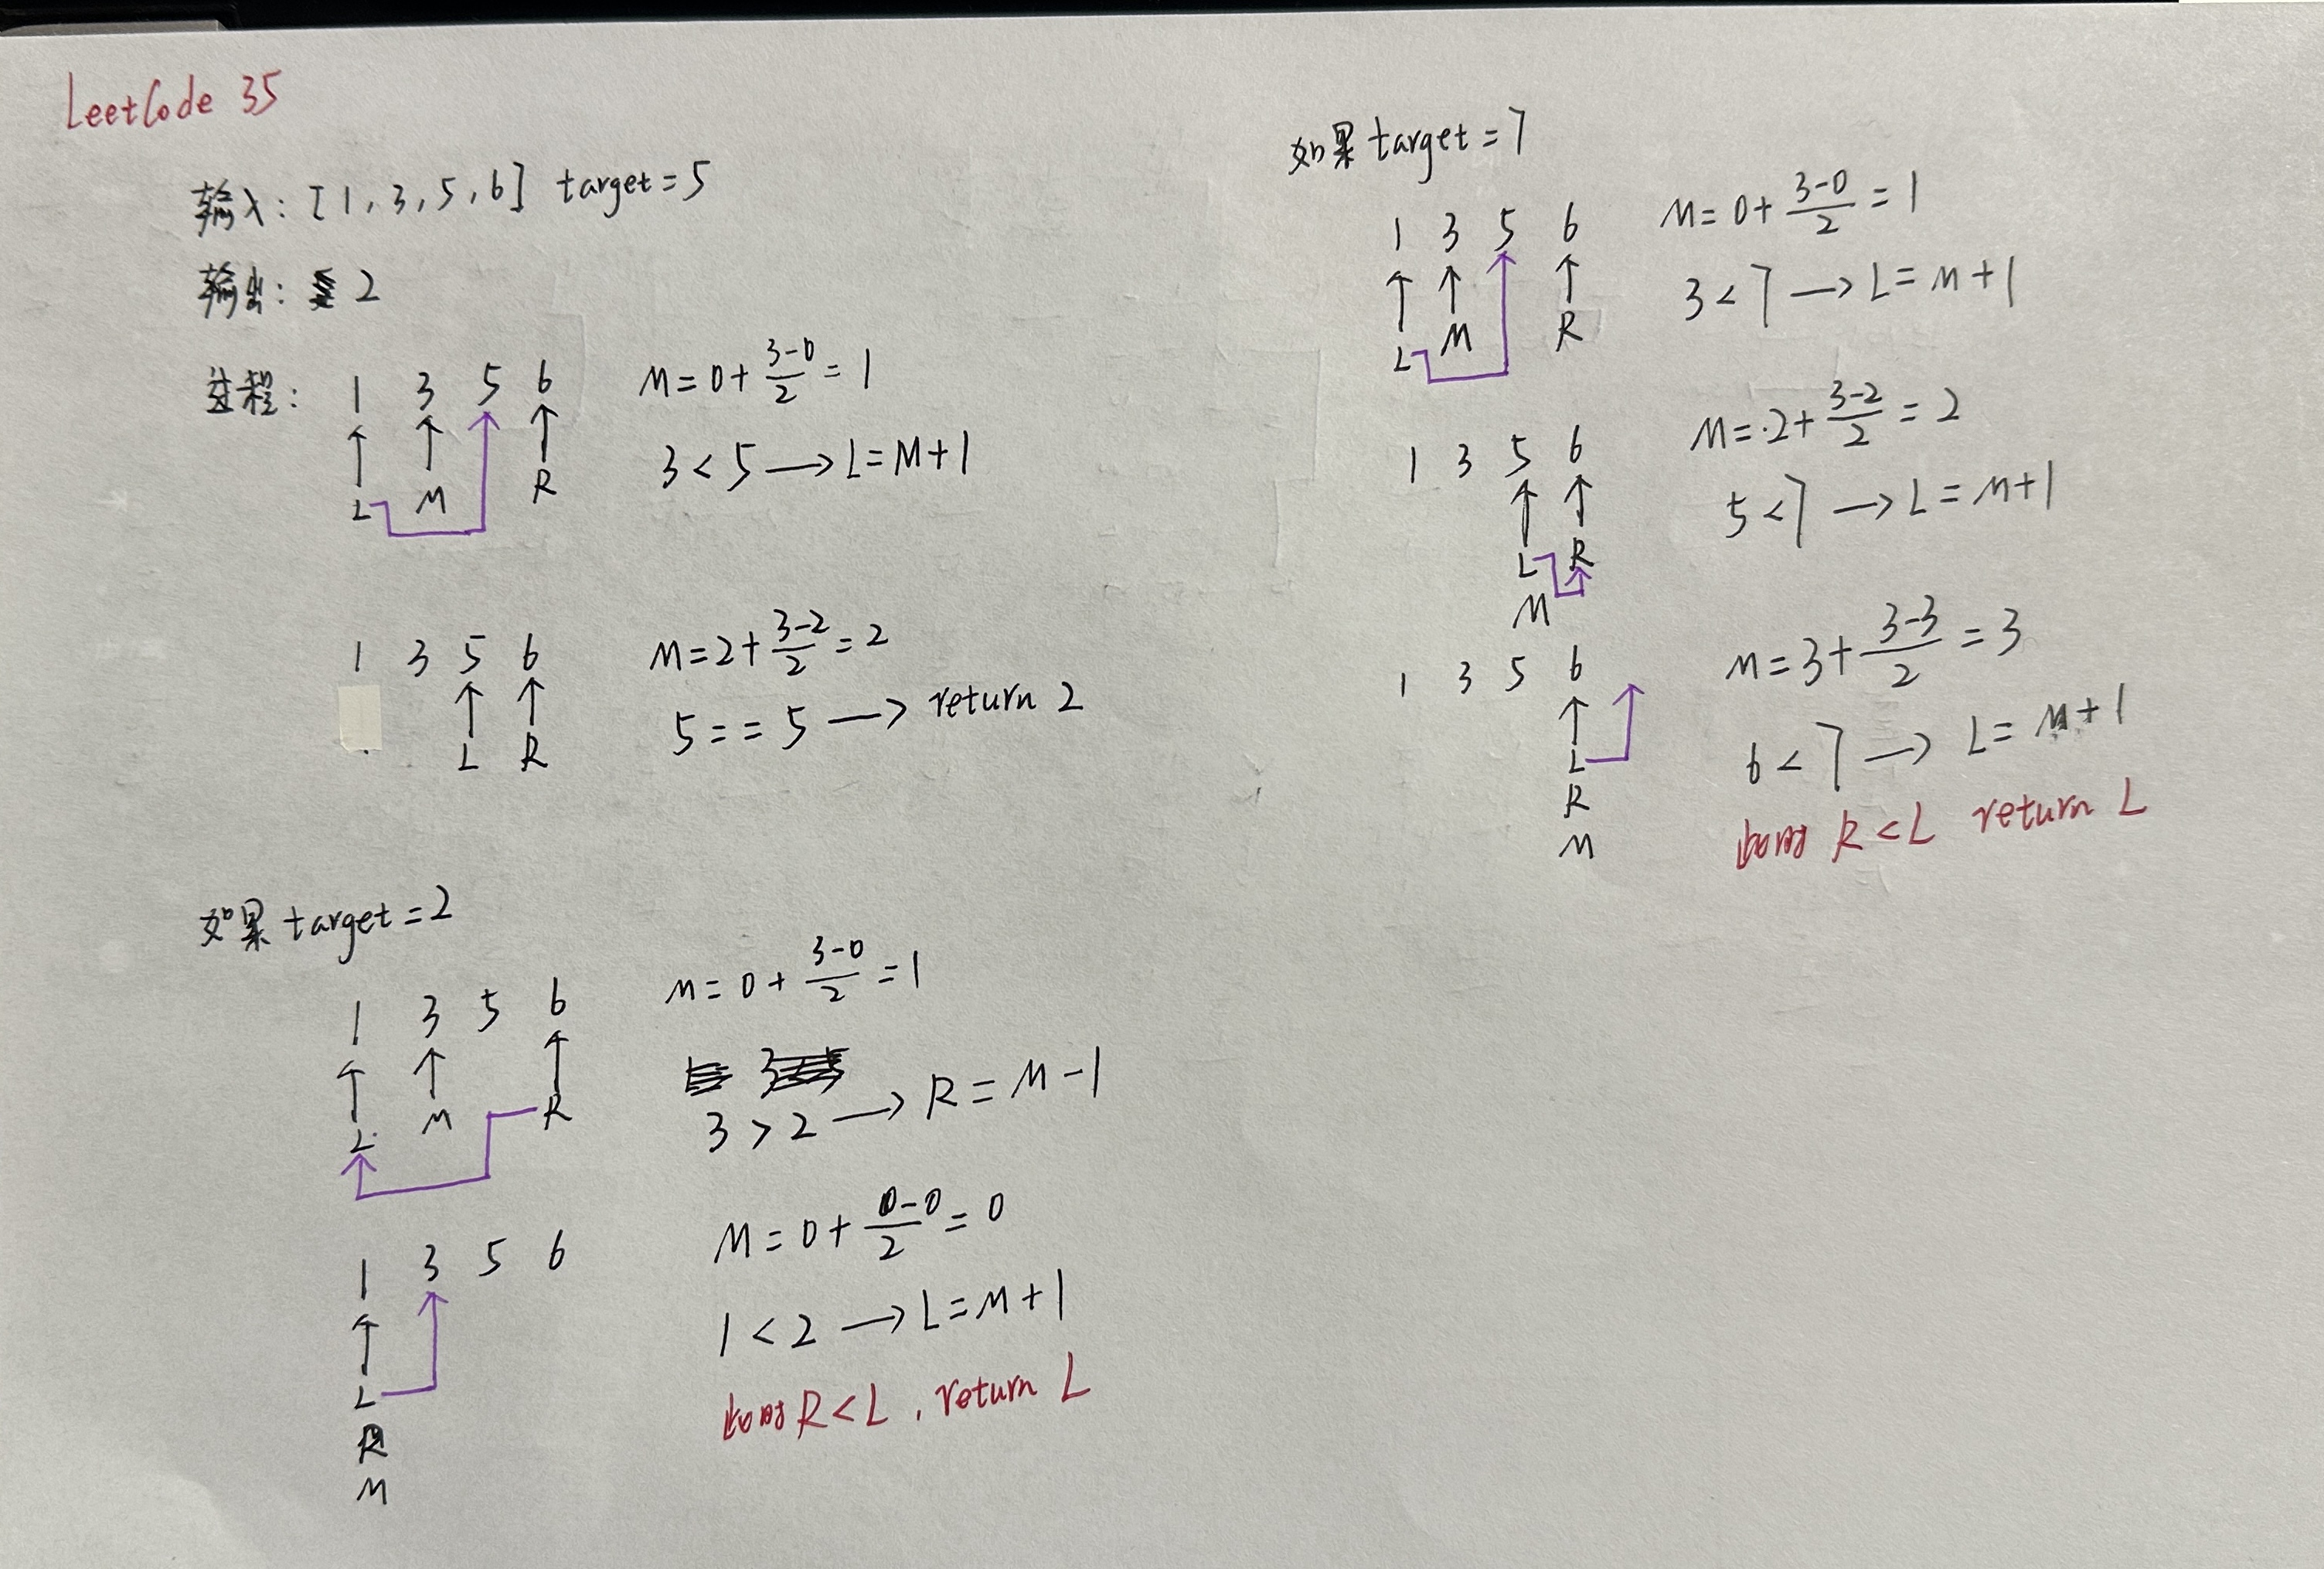 LeetCode 35
输入: [1, 3, 5, 6] target=5
输出: 2
过程: 1 3 5 6
L M R
M=0+(3-0)/2=1
3<5→L=M+1
1 3 5 6
L R
M=2+(3-2)/2=2
5==5→return 2
如果target=2
1 3 5 6
L M R
M=0+(3-0)/2=1
3>2→R=M-1
1 3 5 6
L
R
M
M=0+(0-0)/2=0
1<2→L=M+1
此时R<L, return L
如果target=7
1 3 5 6
L M R
M=0+(3-0)/2=1
3<7→L=M+1
1 3 5 6
L R
M
M=2+(3-2)/2=2
5<7→L=M+1
1 3 5 6
L
R
M
M=3+(3-3)/2=3
6<7→L=M+1
此时R<L return L